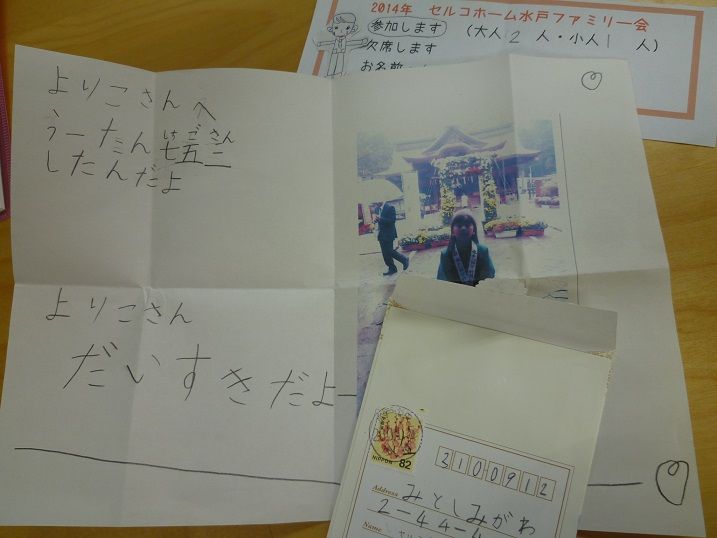 2014年 セルコホーム水戸ファミリー会
参加します (大人 2 人・小人 1 人)
欠席します
お名前
よりこさんへ
うーたん
しちごさん
七五三
したんだよ
よりこさん
だいすきだよー
NIPPON 82
3100912
Address みとしみがわ
2-44-4
Name